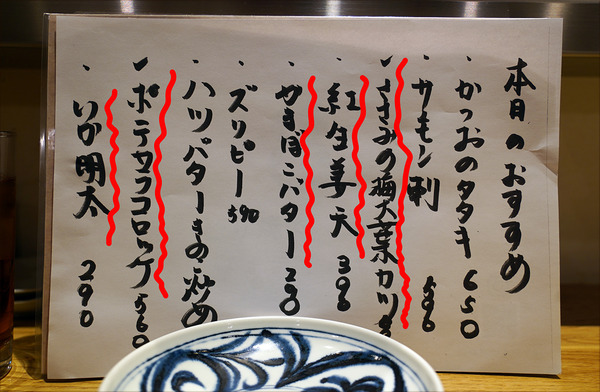 本日のおすすめ
・かつおのタタキ 650
・サーモン刺 590
・ささみの梅大葉カツ
・紅生姜天 390
・かまぼこバター 290
・ズリピー 590
・ハツバターきのこ炒め
・ポテサラコロッケ 560
・いか明太 290